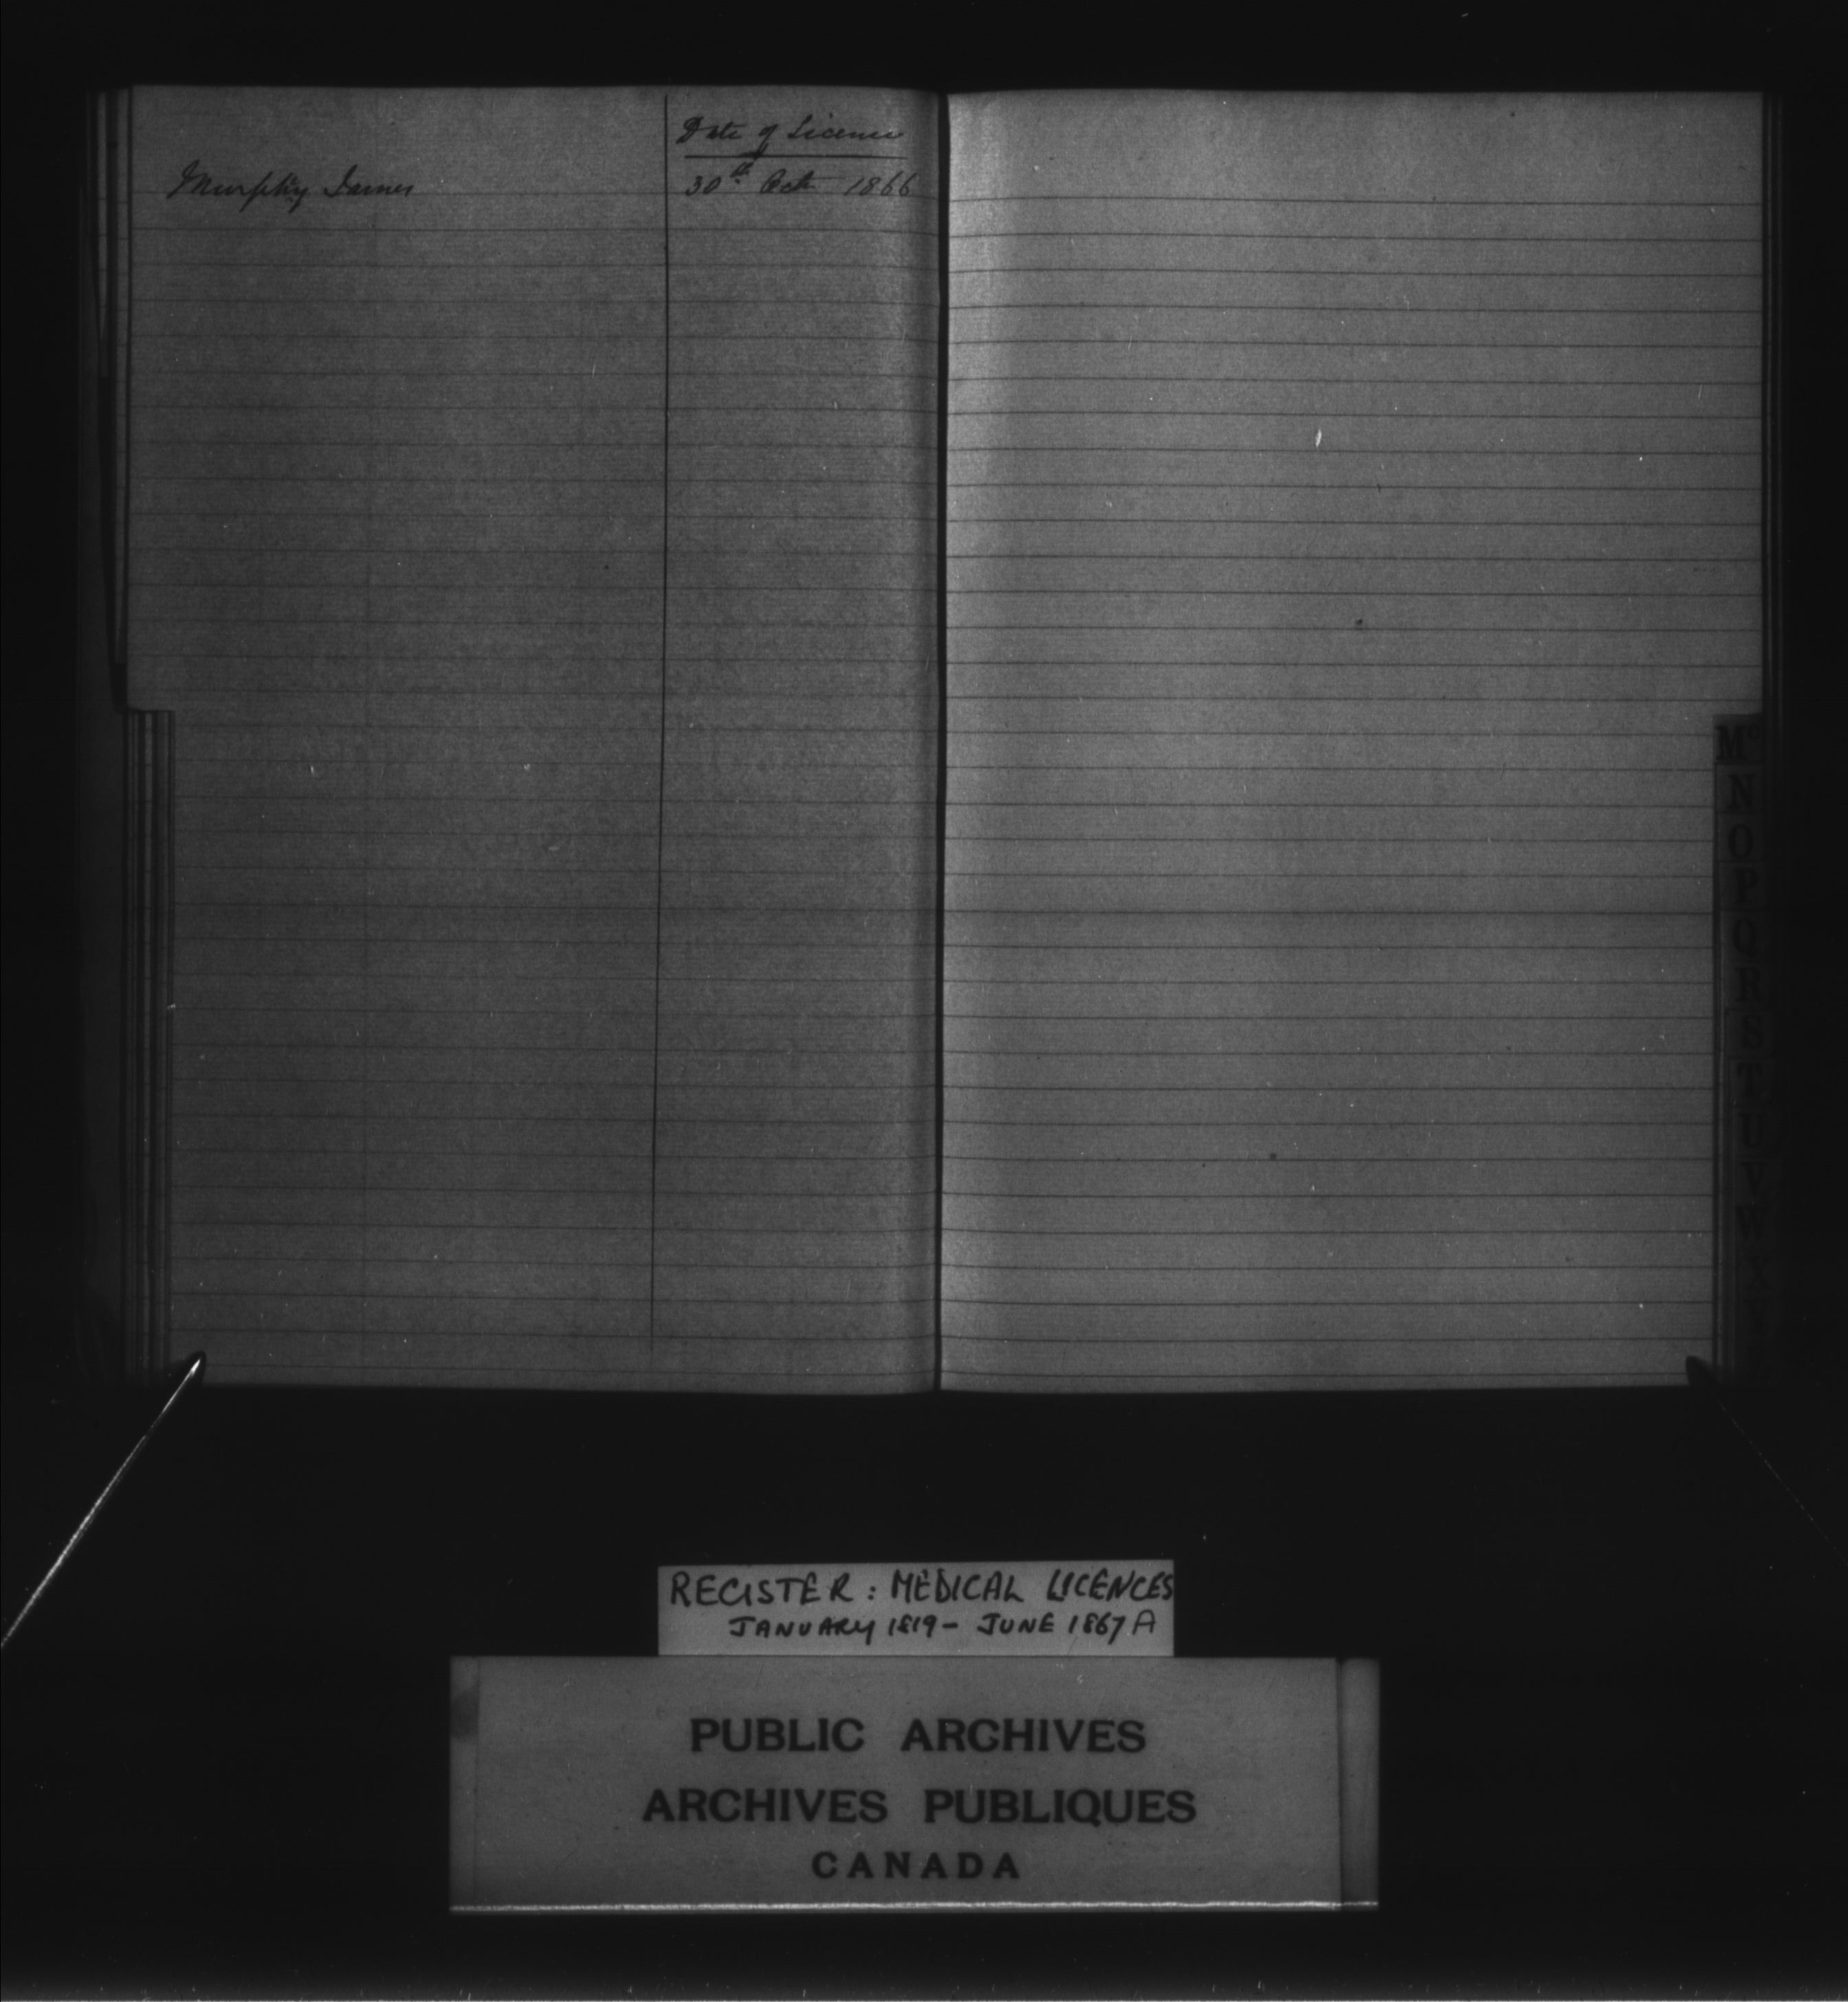 Date of Licence
Murphy James 30th Oct 1866
Mc
N
O
P
Q
R
S
T
U
V
W
X
Y
REGISTER: MEDICAL LICENCES
JANUARY 1819 - JUNE 1867 A
PUBLIC ARCHIVES
ARCHIVES PUBLIQUES
CANADA